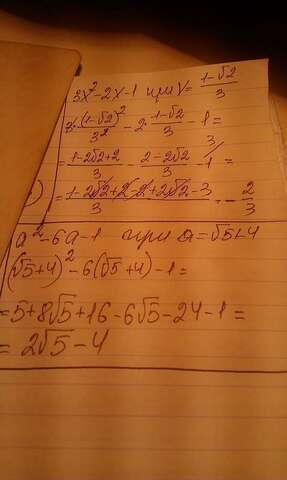 3x²-2x-1 при x=(1-√2)/3
3·(1-√2)²/3² - 2·(1-√2)/3 - 1 =
=(1-2√2+2)/3 - (2-2√2)/3 - 1 =
=(1-2√2+2-2+2√2-3)/3 = -2/3
a²-6a-1 при a=√5+4
(√5+4)²-6(√5+4)-1=
=5+8√5+16-6√5-24-1=
=2√5-4